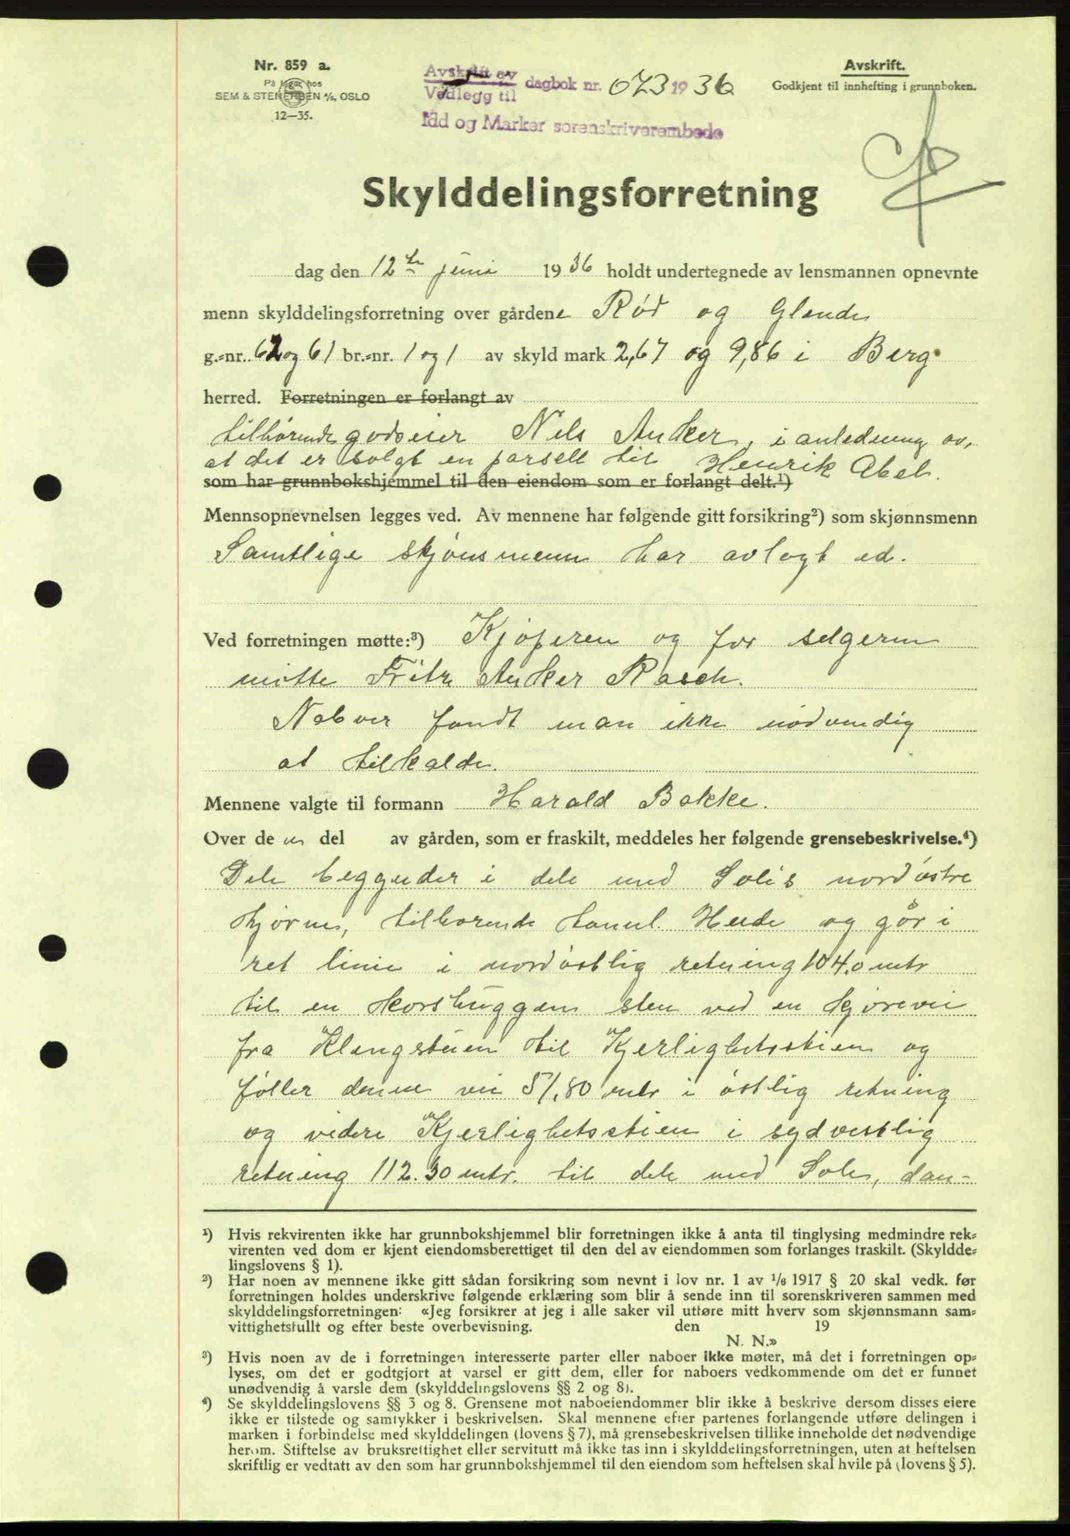 Nr. 859 a.
På lager hos
SEM & STENERSEN A/S, OSLO
12—35.
Avskrift av
Vedlegg til
dagbok nr. 673 1936
Idd og Marker sorenskriverembede
Avskrift.
Godkjent til innhefting i grunnboken.
Skylddelingsforretning
dag den 12te juni 1936 holdt undertegnede av lensmannen opnevnte
menn skylddelingsforretning over gårdene Rød og Glende
g.-nr. 62 og 61 br.-nr. 1 og 1 av skyld mark 2,67 og 9,86 i Berg
herred. Forretningen er forlangt av
tilhørende godseier Nils Anker, i anledning av,
at det er solgt en parsell til Henrik Abel.
som har grunnbokshjemmel til den eiendom som er forlangt delt.¹)
Mennsopnevnelsen legges ved. Av mennene har følgende gitt forsikring²) som skjønnsmenn
Samtlige skjønsmenn har avlagt ed.
Ved forretningen møtte:³) Kjøperen og for selgeren
møtte Fritz Anker Rasch.
Naboer fandt man ikke nødvendig
at tilkalde.
Mennene valgte til formann Harald Bakke.
Over de n del av gården, som er fraskilt, meddeles her følgende grensebeskrivelse.⁴)
Dele begynder i dele med Solis nordøstre
hjørne, tilhørende Heide og går i
ret linie i nordøstlig retning 104.0 mtr
til en korshuggen sten ved en kjørevei
fra Klengstuen til Kjerlighetsstien og
følger denne vei 51,80 mtr i østlig retning
og videre Kjerlighetsstien i sydvestlig
retning 112.30 mtr. til dele med Solis, dan-
¹) Hvis rekvirenten ikke har grunnbokshjemmel blir forretningen ikke å anta til tinglysing medmindre rek-
virenten ved dom er kjent eiendomsberettiget til den del av eiendommen som forlanges fraskilt. (Skyldde-
lingslovens § 1).
²) Har noen av mennene ikke gitt sådan forsikring som nevnt i lov nr. 1 av 1/6 1917 § 20 skal vedk. før
forretningen holdes underskrive følgende erklæring som blir å sende inn til sorenskriveren sammen med
skylddelingsforretningen: «Jeg forsikrer at jeg i alle saker vil utføre mitt hverv som skjønnsmann sam-
vittighetsfullt og efter beste overbevisning. den 19
N. N.»
³) Hvis noen av de i forretningen interesserte parter eller naboer ikke møter, må det i forretningen op-
lyses, om det er godtgjort at varsel er gitt dem, eller for naboers vedkommende om det er funnet
unødvendig å varsle dem (skylddelingslovens §§ 2 og 8).
⁴) Se skylddelingslovens §§ 3 og 8. Grensene mot naboeiendommer blir ikke å beskrive dersom disses eiere
ikke er tilstede og samtykker i beskrivelsen. Skal mennene efter partenes forlangende utføre delingen i
marken i forbindelse med skylddelingen (lovens § 7), må grensebeskrivelsen tillike inneholde det nødvendige
herom. Stiftelse av bruksrettighet eller servitutt må ikke tas inn i skylddelingsforretningen, uten at heftelsen
skriftlig er vedtatt av den som har grunnbokshjemmel til den eiendom som heftelsen skal hvile på (lovens § 5).